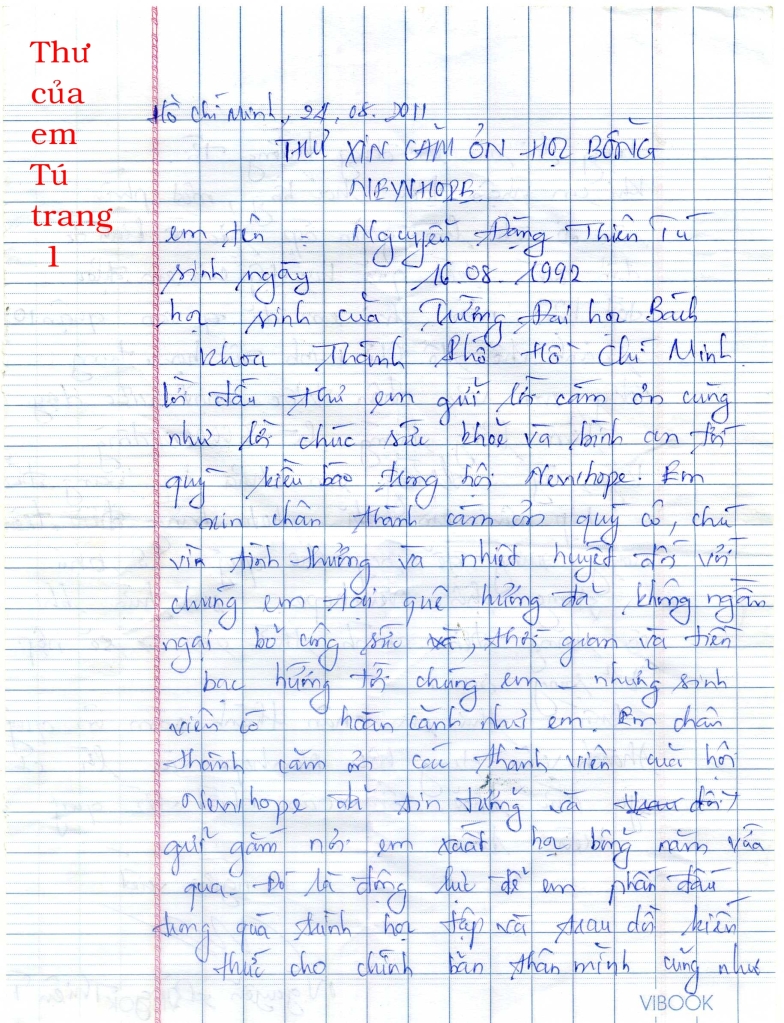 Thư
của
em
Tú
trang
1
Hồ Chí Minh, 24, 08. 2011
THƯ XIN CẢM ƠN HỌC BỔNG
NEWHOPE
em tên : Nguyễn Đặng Thiên Tú
sinh ngày 16.08.1992
học sinh của Trường Đại học Bách
Khoa Thành Phố Hồ Chí Minh
lời đầu thư em gửi lời cảm ơn cũng
như lời chúc sức khoẻ và bình an tới
quý kiều bào trong hội Newhope. Em
xin chân thành cảm ơn quý cô, chú
vì tình thương và nhiệt huyết đối với
chúng em tại quê hương đã không ngần
ngại bỏ công sức và, thời gian và tiền
bạc hướng tới chúng em – những sinh
viên có hoàn cảnh như em. Em chân
thành cảm ơn các thành viên của hội
Newhope đã tin tưởng và trau dồi
gửi gắm nơi em xuất học bổng năm vừa
qua. Đó là động lực để em phấn đấu
trong quá trình học tập và trau dồi kiến
thức cho chính bản thân mình cũng như
VIBOOK